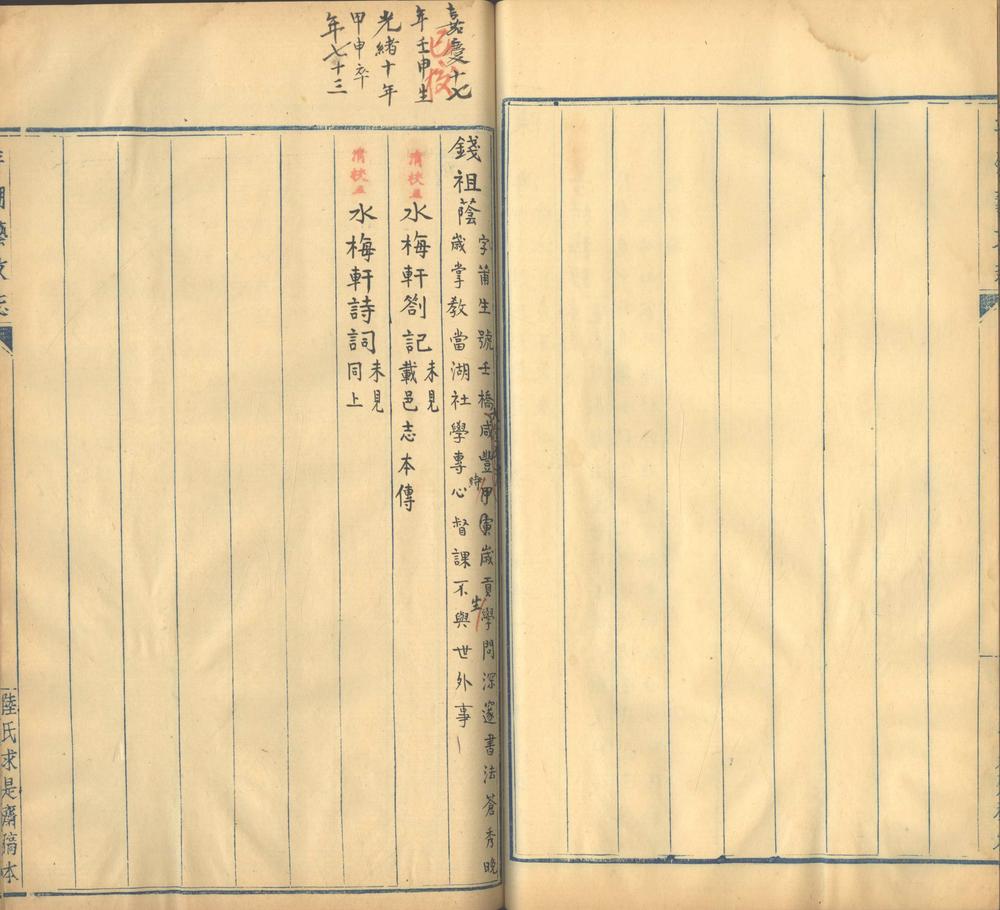 嘉慶十七
年壬申生
光緒十年
甲申卒
年七十三
已校
錢祖蔭
字蒲生號壬橋咸豐甲寅歲貢學問深邃書法蒼秀晚
緯
生
歲掌教當湖社學專心督課不與世外事
清校
水梅軒劄記
未見
載邑志本傳
清校
水梅軒詩詞
未見
同上
湖藝文志
陸氏求是齋稿本